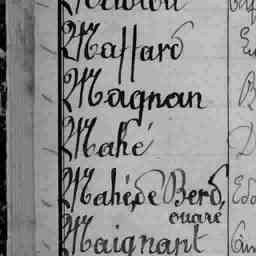 Maffard
Magnan
Mahé
Mahé, de Berd,
ouare
Maignant